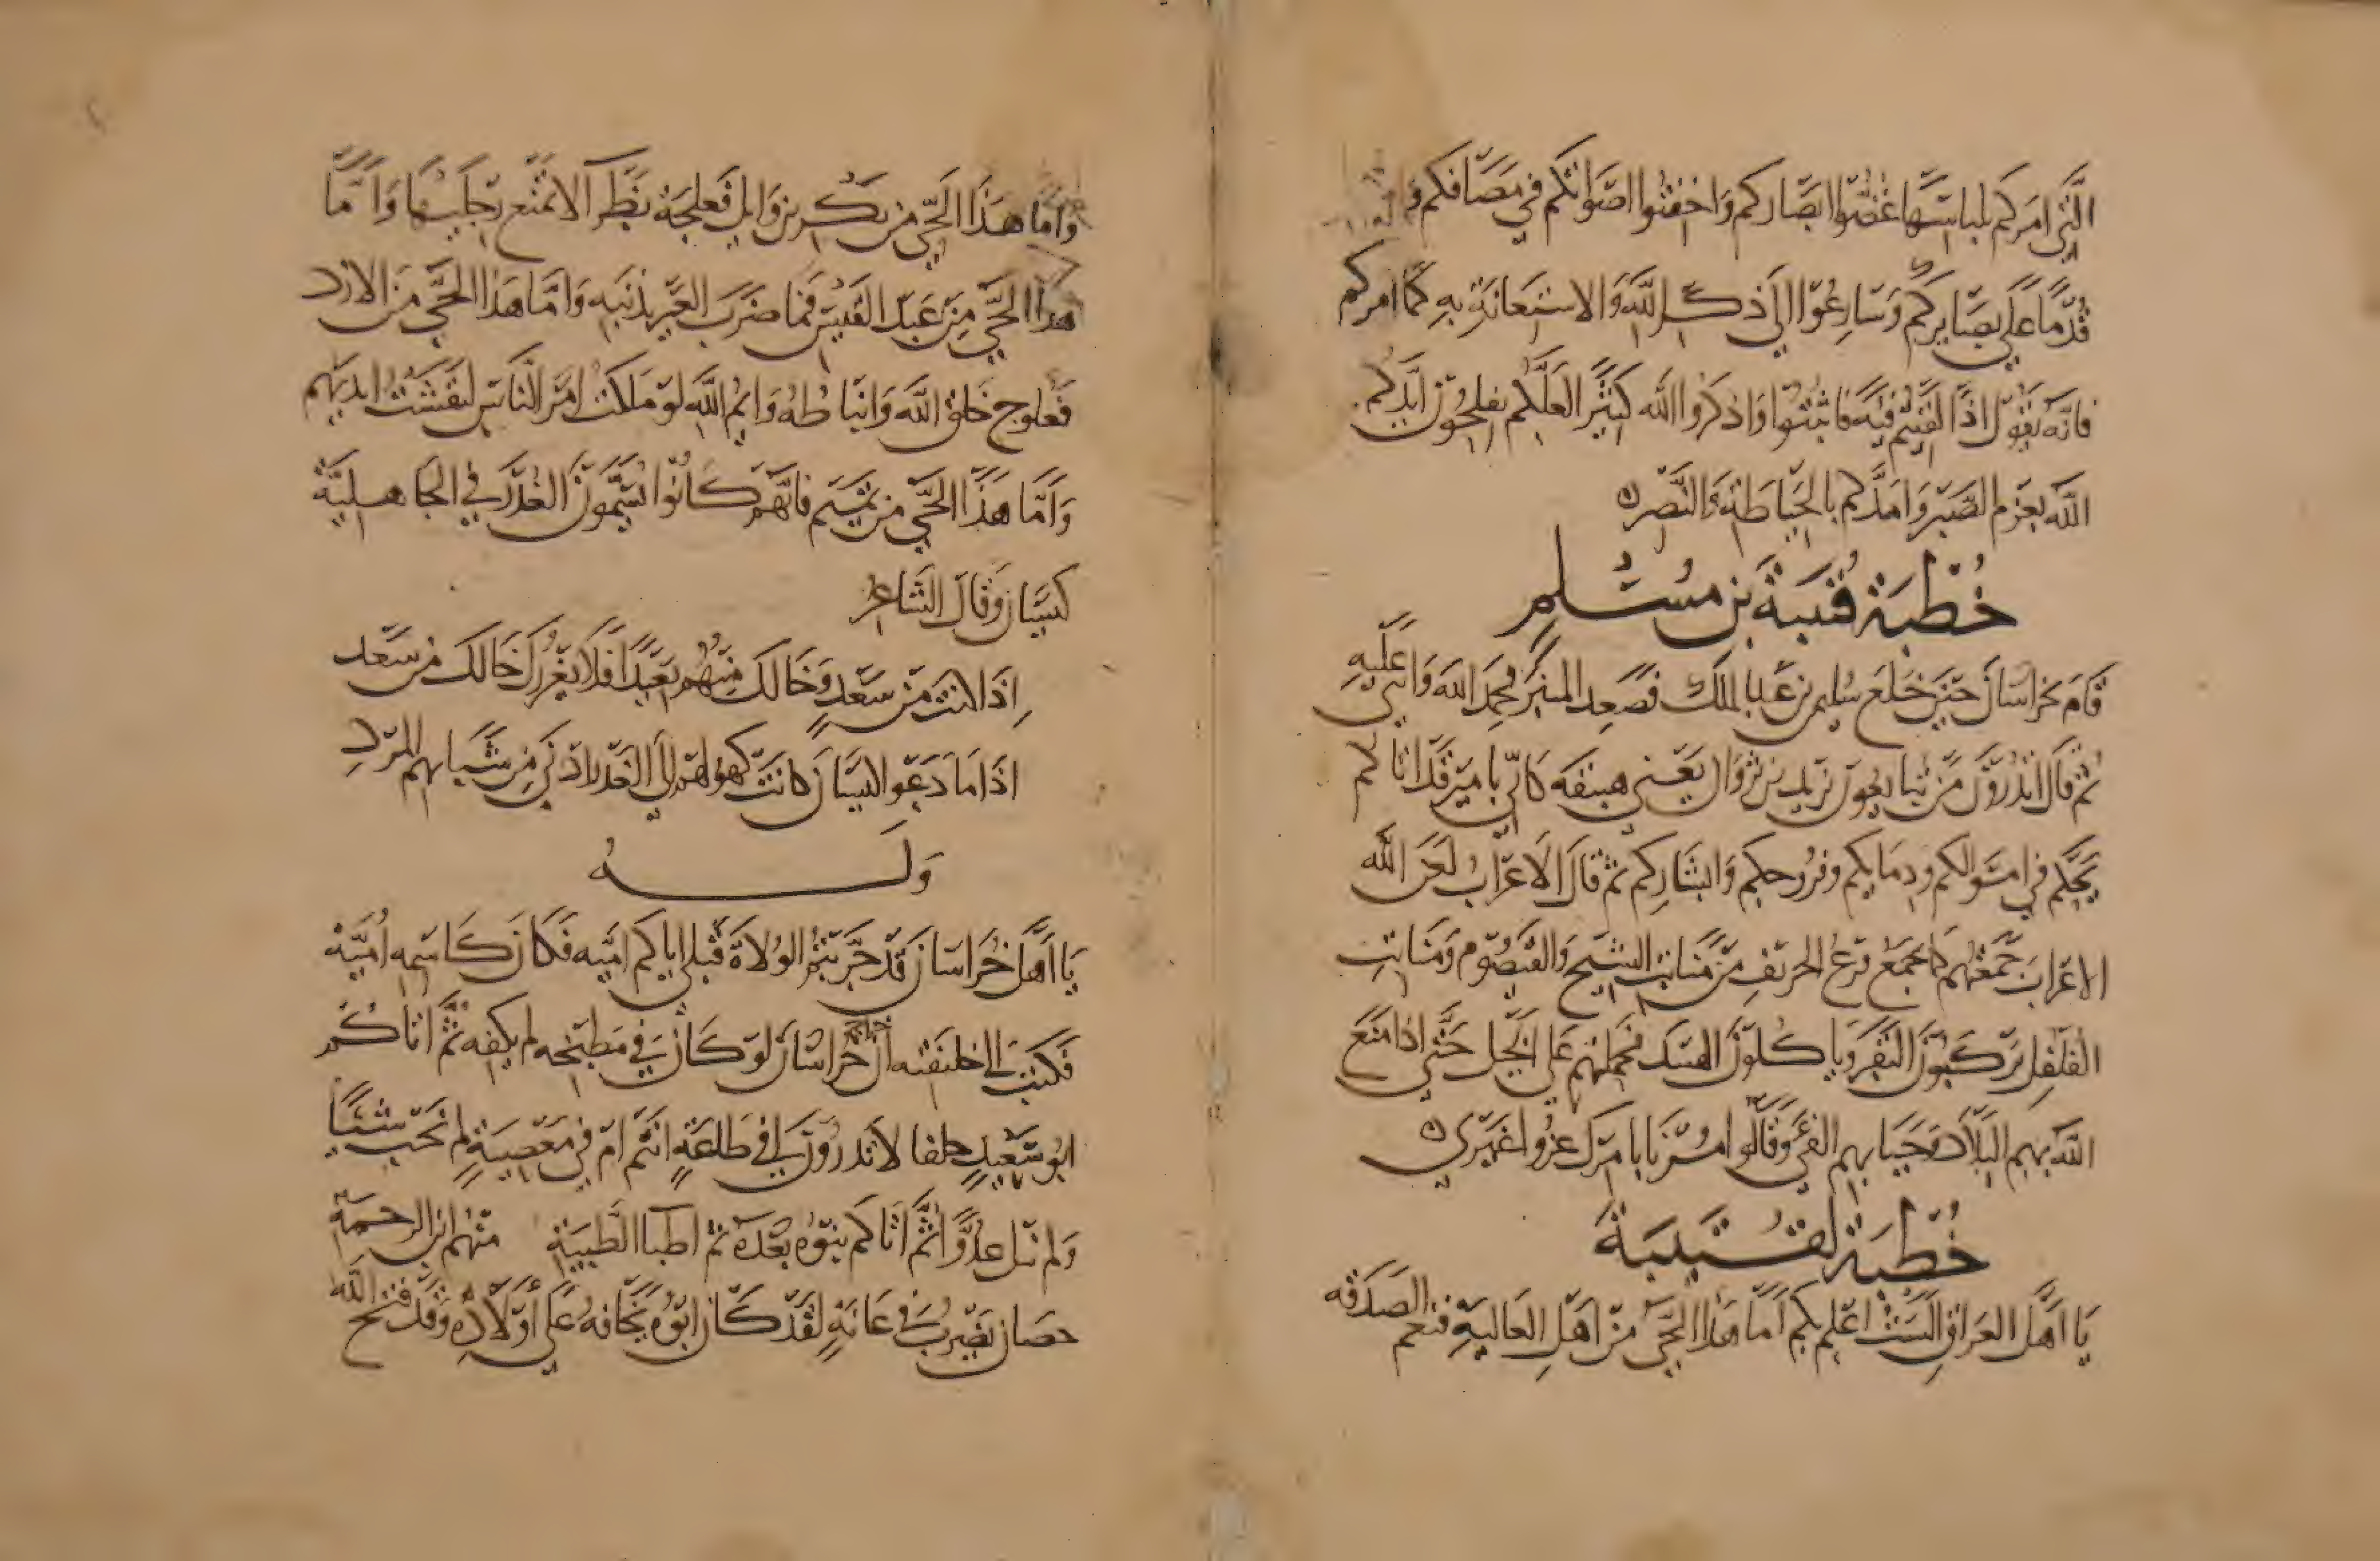 الَّتِي امَركم بلباسها غضّوا ابصاركم وَاخفتوا اصَواتكم في مَصَافكم
قُدمًا عَلي بصَايركم وَسَارِعُوا الَي ذكر اللَّه وَالاستعَانَةِ بهِ كمَا امركم
فانّه يقول اذا لقيتم فيَة فاثبتوا وَاذكروا الله كثيرا لعَلّكم تفلحون ايّدكم
اللّه بعَزم الصَبر وَامَدّكم بالحيَاطَة وَالنَّصْر
خُطْبَة قُتيبَة بن مُسْلِم
قامَ بخراسَان حينَ خلعَ سليمن بن عَبد الملك فصَعِد المنبَر فحمِدَ الله وَاثنَي عَليهِ
ثم قالَ اتدرُونَ مَن تبايعُونَ يزيد بن ثروَان يَعني هبنقَه كَانّي بامير قَد اتاكم
يحكم في امْوالكم ودمَايكم وفرُوجكم وَابشاركم ثم قالَ الاعرَابُ لعَن الله
الاعرابَ جَمعتُهم كما يجمَع قزعُ الخريفِ من مَنَابتِ الشيح وَالقيصُوم وَمنَابتِ
الفلفل يركبونَ البَقر وَياكلون الهبيد فحملتهم عَلي الخيل حَتّي اذا منعَ
اللّه بهم البلاد وَجَبا بهم الفي وَقالوا مُرنا بامرك غرّوا غيري
خُطْبَة لقُتَيبَة
يَا اهْل العرَاق الَستُ اعلمكم بكم امّا هذا الحيّ من اهْلِ العَاليةِ فنعم الصَدقه
وَامّا هَذَا الحَيّ من بَكر بن وَايل فَعلجَة بَظرا لا تمنَع رجليهَا وَامّا
هذا الحَيّ مِن عَبد القَيس فمَا ضرَبَ العَير بذنَبه وَامَّا هَذا الحَيّ مِنَ الازد
فعُلوج خَلق اللَّه وَانبَاطهُ وَايمُ اللَّهِ لو مَلكتُ امْر النَّاس لنقَشتُ ايديهم
وَامَّا هَذا الحَيّ من تميم فانّهم كَانُوا يسَمّونَ الغدر في الجَاهليَّة
كيسَان وَقالَ الشاعرُ
اِذا كنتَ من سَعدٍ وَخَالكَ مِنهُم بَعيدًا فلَا يغرُركَ خَالكَ من سَعد
اذَا مَا دَعَوا كيسَان كانتْ كهولهم الَي الغدر ادني مِن شبَابهم المُردِ
وَلـــهُ
يَا اَهْلَ خُرَاسَانَ قَد جَرّبتمُ الوُلاةَ قبلي اتاكم اميّه فكَانَ كَاسمه اُميَّة
فكتبَ الي خليفته انّ خراج خُراسَان لو كَانَ في مَطبخه لم يكفه ثمَّ اتاكُم
ابُو سَعيدٍ حلفا لا تدرُونَ افي طَاعَةٍ انتم ام في مَعصِيَةٍ لم يَجب شيئًا
وَلم ينل عدوًّا ثمَّ اتاكم بنوُه بعْدَه ثم اطبَا الطَّبيَةِ منهم ابن الرحمة
حصَان يضربُ في عَانَةٍ لقد كَانَ ابُوه يخَافهُ عَلي اَولَادِه وَقد فتح اللّه